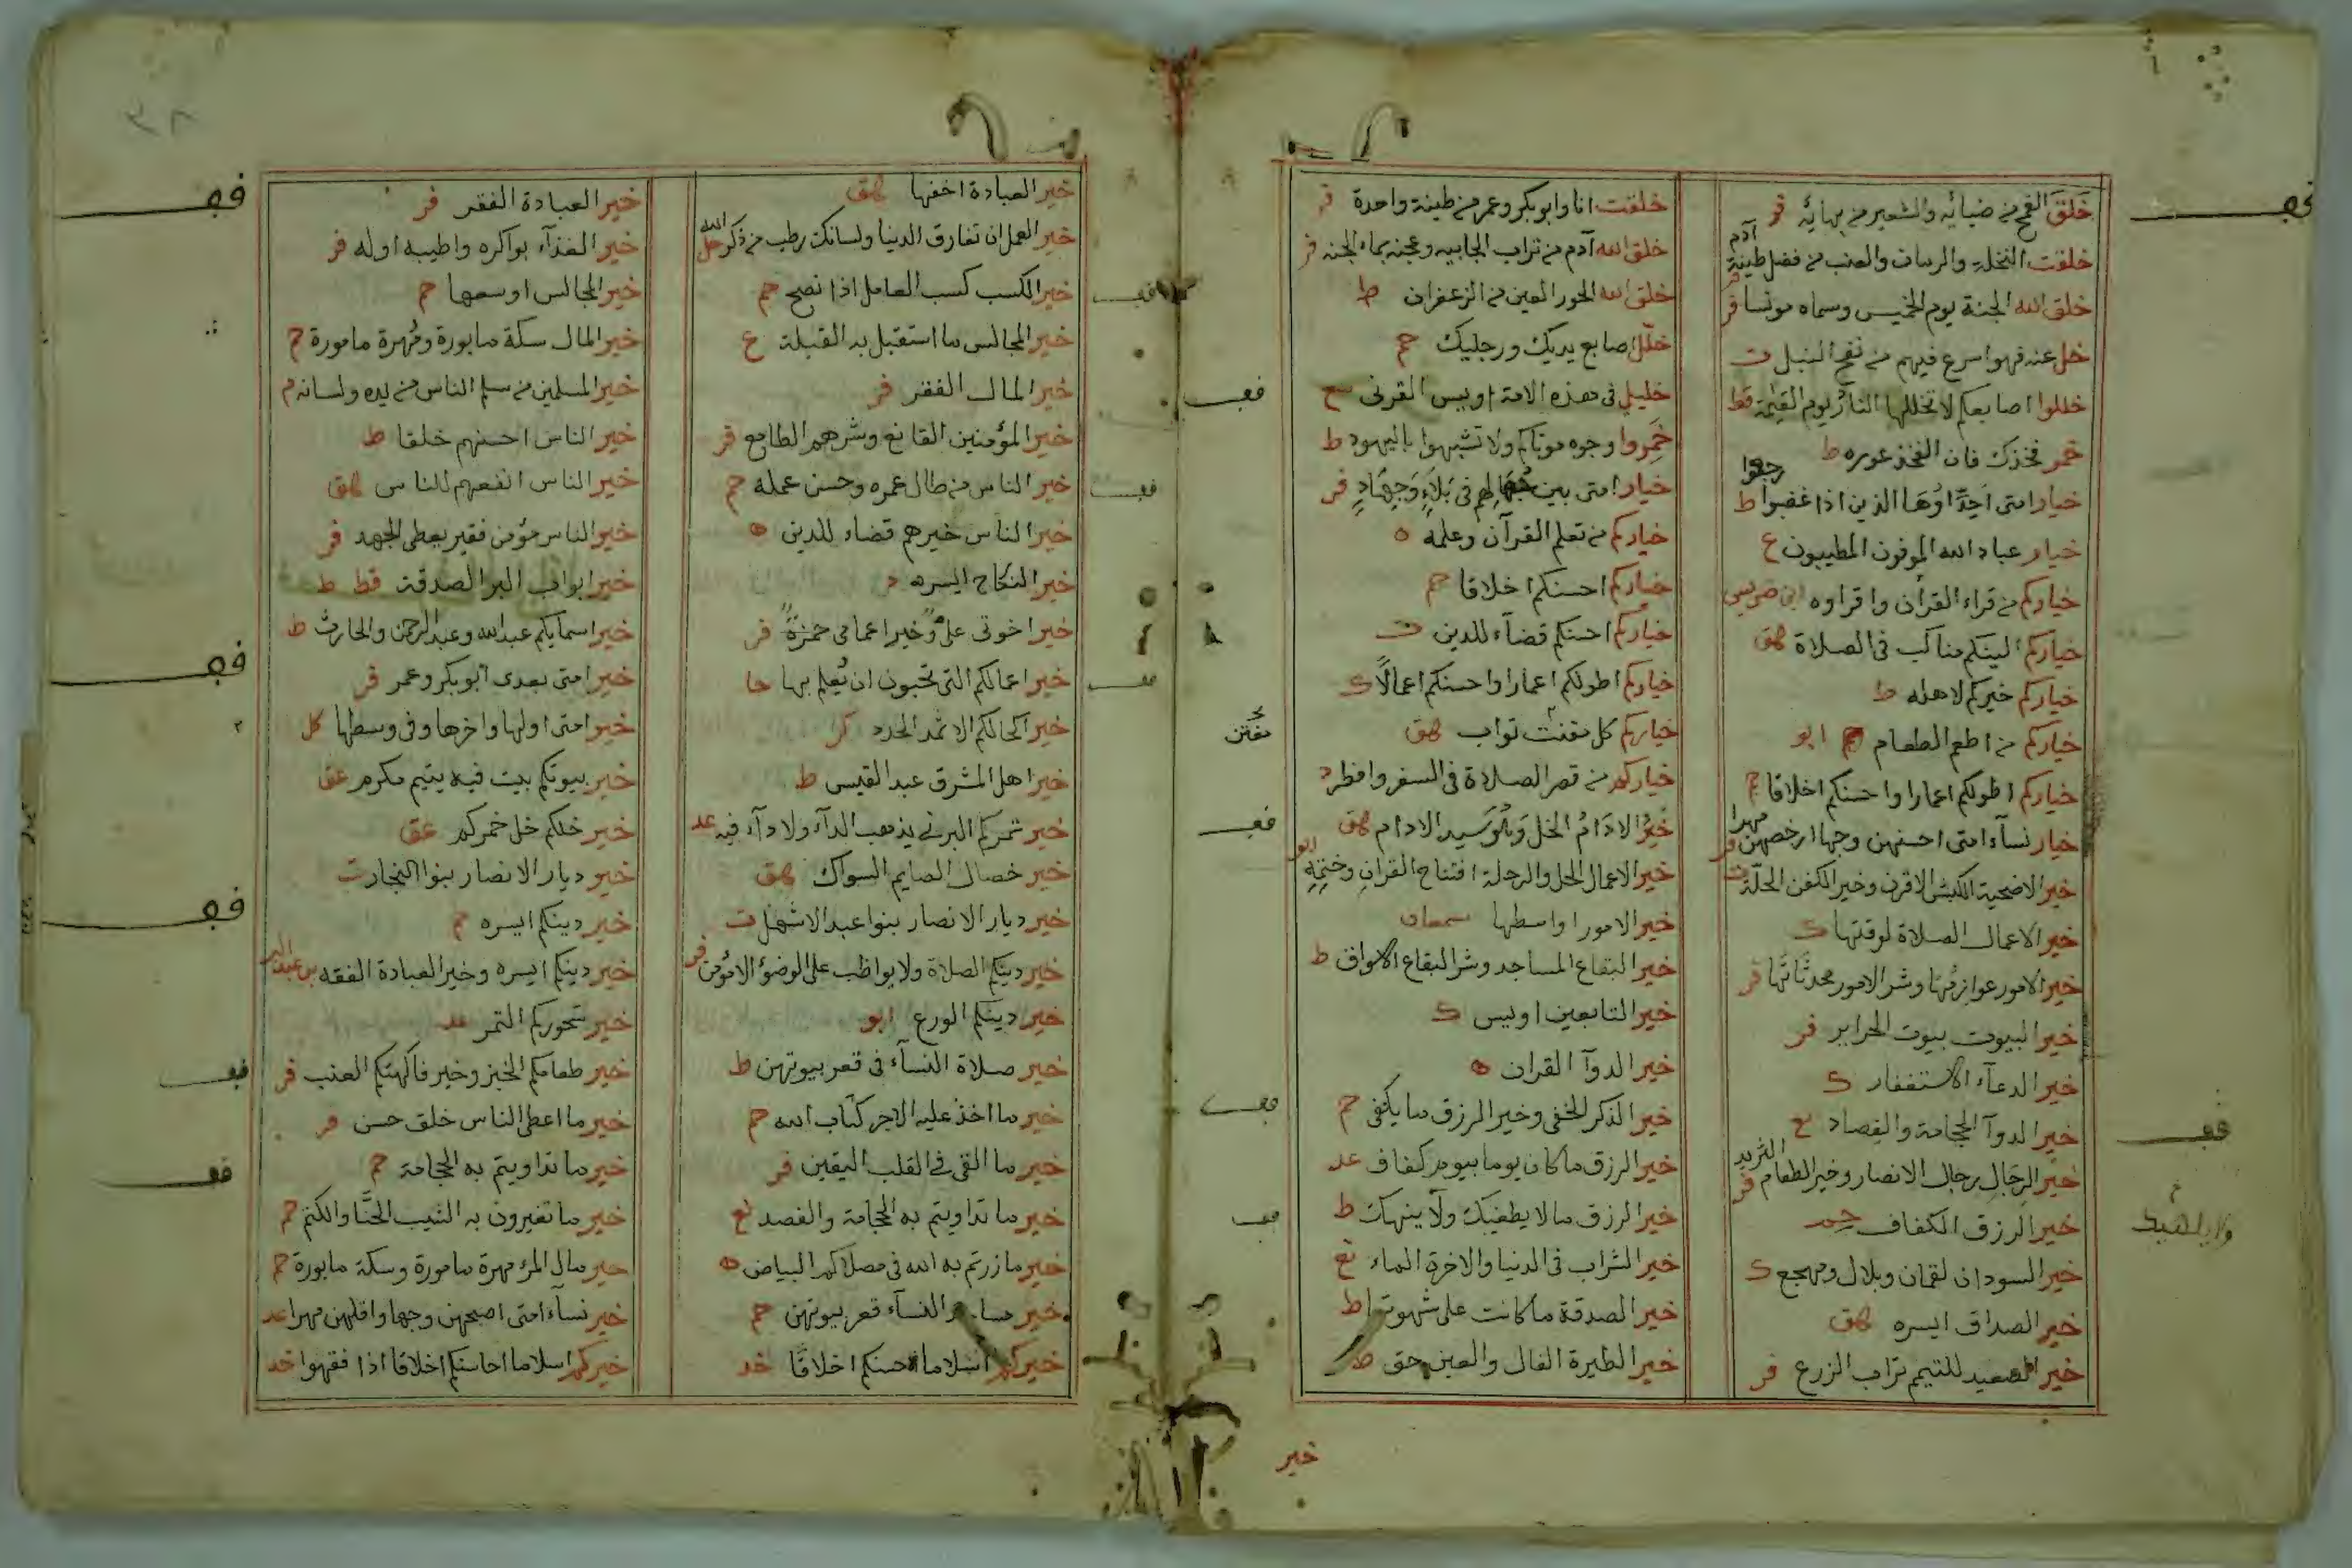 خلق القمح من ضيائه والشعير من بهائه فر
خلقت النخلة والرمان والعنب من فضل طينة آدم
خلق الله الجنة يوم الخميس وسماه مونسا فر
خل عنه فهو اسرع فيهم من نضح النبل ت
خللوا اصابعكم لا تخللها النار يوم القيمة قط
خمر فخذك فان الفخذ عوره ط
خيار امتى احداؤها الذين اذا غضبوا رجعوا ط
خيار عباد الله الموفون المطيبون ع
خياركم من قراء القرآن واقراوه ابن ضريس
خياركم الينكم مناكب فى الصلاة هق
خياركم خيركم لاهله ط
خياركم من اطعم الطعام ابو
خياركم اطولكم اعمارا واحسنكم اخلاقا حم
خيار نسآء امتى احسنهن وجها ارخصهن مهرا فر
خير الاضحية الكبش الاقرن وخير الكفن الحلة ت
خير الاعمال الصلاة لوقتها ك
خير الامور عوازمها وشر الامور محدثاتها فر
خير البيوت بيوت الحراير فر
خير الدعآء الاستغفار ك
خير الدوآ الحجامة والفصاد ع
خير الرجال رجال الانصار وخير الطعام الثريد فر
خير الرزق الكفاف حمد
خير السودان لقمان وبلال ومهجع ك
خير الصداق ايسره هق
خير الصعيد للتيمم تراب الزرع فر
خلقت انا وابوبكر وعمر من طينة واحدة فر
خلق الله آدم من تراب الجابيه وعجنه بماء الجنه فر
خلق الله الحور العين من الزعفران ط
خلل اصابع يديك ورجليك حم
خليلى فى هذه الامة اويس القرنى سع
خمروا وجوه موتاكم ولا تشبهوا باليهود ط
خيار امتى بين فى بلاء وجهاد فر
خياركم من تعلم القرآن وعلمه ه
خياركم احسنكم اخلاقا حم
خياركم احسنكم قضآء للدين ت
خياركم اطولكم اعمارا واحسنكم اعمالا ك
خياركم كل مفتت تواب هق
مفتن
خياركم من قصر الصلاة فى السفر وافطر د
خير الادام الخل وهو سيد الادام هق
خير الاعمال الحل والرحلة افتتاح القران وختمه ابو
خير الامور اواسطها سمعان
خير البقاع المساجد وشر البقاع الاسواق ط
خير التابعين اويس ك
خير الدوآ القران ه
خير الذكر الخفى وخير الرزق ما يكفى حم
خير الرزق ما كان يوما بيوم كفاف عد
خير الرزق ما لا يطغيك ولا ينهك ط
خير الشراب فى الدنيا والاخرة الماء نع
خير الصدقة ما كانت على شهوتها ط
خير الطيرة الفال والعين حق ط
خير
خير العبادة اخفها هق
خير العمل ان تفارق الدنيا ولسانك رطب من ذكر الله حل
خير الكسب كسب العامل اذا نصح حم
خير المجالس ما استقبل به القبلة ع
خير المال الفقر فر
خير المؤمنين القانع وشرهم الطامع فر
خير الناس من طال عمره وحسن عمله حم
خير الناس خيرهم قضاء للدين ه
خير النكاح ايسره د
خير اخوتى على وخير اعمامى حمزة فر
خير اعمالكم التى تحبون ان يُعلم بها حا
خير اكحالكم الاثمد الحدد كر
خير اهل المشرق عبد القيس ط
خير تمركم البرنى يذهب الدآء ولا دآء فيه عد
خير خصال الصايم السواك هق
خير ديار الانصار بنوا عبد الاشهل ت
خير دينكم الصلاة ولا يواظب على الوضؤ الا مؤمن فر
خير دينكم الورع ابو
خير صلاة النسآء فى قعر بيوتهن ط
خير ما اخذ عليه الاجر كتاب الله حم
خير ما القى فى القلب اليقين فر
خير ما تداويتم به الحجامة والفصد نع
خير ما زرتم به الله فى مصلاكم البياض ه
خير النسآء قعر بيوتهن حم
خيركم اسلاما احسنكم اخلاقا خد
٣٨
خير العبادة الفقر فر
خير الغذآء بواكره واطيبه اوله فر
خير المجالس اوسعها حم
خير المال سكة مابورة ومهرة مامورة حم
خير المسلمين من سلم الناس من يده ولسانه م
خير الناس احسنهم خلقا ط
خير الناس انفعهم للناس هق
خير الناس مؤمن فقير يعطى الجهد فر
خير ابواب البر الصدقة قط ط
خير اسمايكم عبد الله وعبد الرحمن والحارث ط
خير امتى بعدى ابوبكر وعمر فر
خير امتى اولها واخرها وفى وسطها كل
خير بيوتكم بيت فيه يتيم مكرم عق
خير خلكم خل خمركم عق
خير ديار الانصار بنوا النجار ت
خير دينكم ايسره حم
خير دينكم ايسره وخير العبادة الفقه بن عبد البر
خير سحوركم التمر عد
خير طعامكم الخبز وخير فاكهتكم العنب فر
خير ما اعطى الناس خلق حسن فر
خير ما تداويتم به الحجامة حم
خير ما تغيرون به الشيب الحنا والكتم حم
خير مال المرء مهرة مامورة وسكة مابورة حم
خير نسآء امتى اصبحهن وجها واقلهن مهرا عد
خيركم اسلاما احاسنكم اخلاقا اذا فقهوا خد